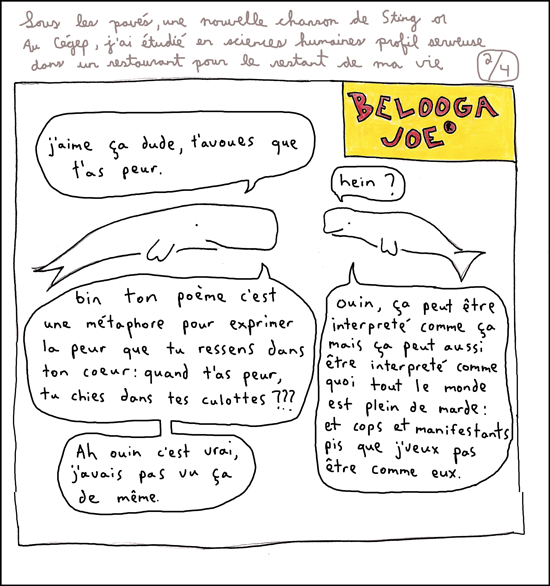 Sous les pavés, une nouvelle chanson de Sting or
Au Cégep, j'ai étudié en sciences humaines profil serveuse
dans un restaurant pour le restant de ma vie
2/4
BELOOGA
JOE®
j'aime ça dude, t'avoues que
t'as peur.
hein ?
bin ton poème c'est
une métaphore pour exprimer
la peur que tu ressens dans
ton coeur: quand t'as peur,
tu chies dans tes culottes ???
Ouin, ça peut être
interpreté comme ça
mais ça peut aussi
être interpreté comme
quoi tout le monde
est plein de marde:
et cops et manifestants
pis que j'veux pas
être comme eux.
Ah ouin c'est vrai,
j'avais pas vu ça
de même.